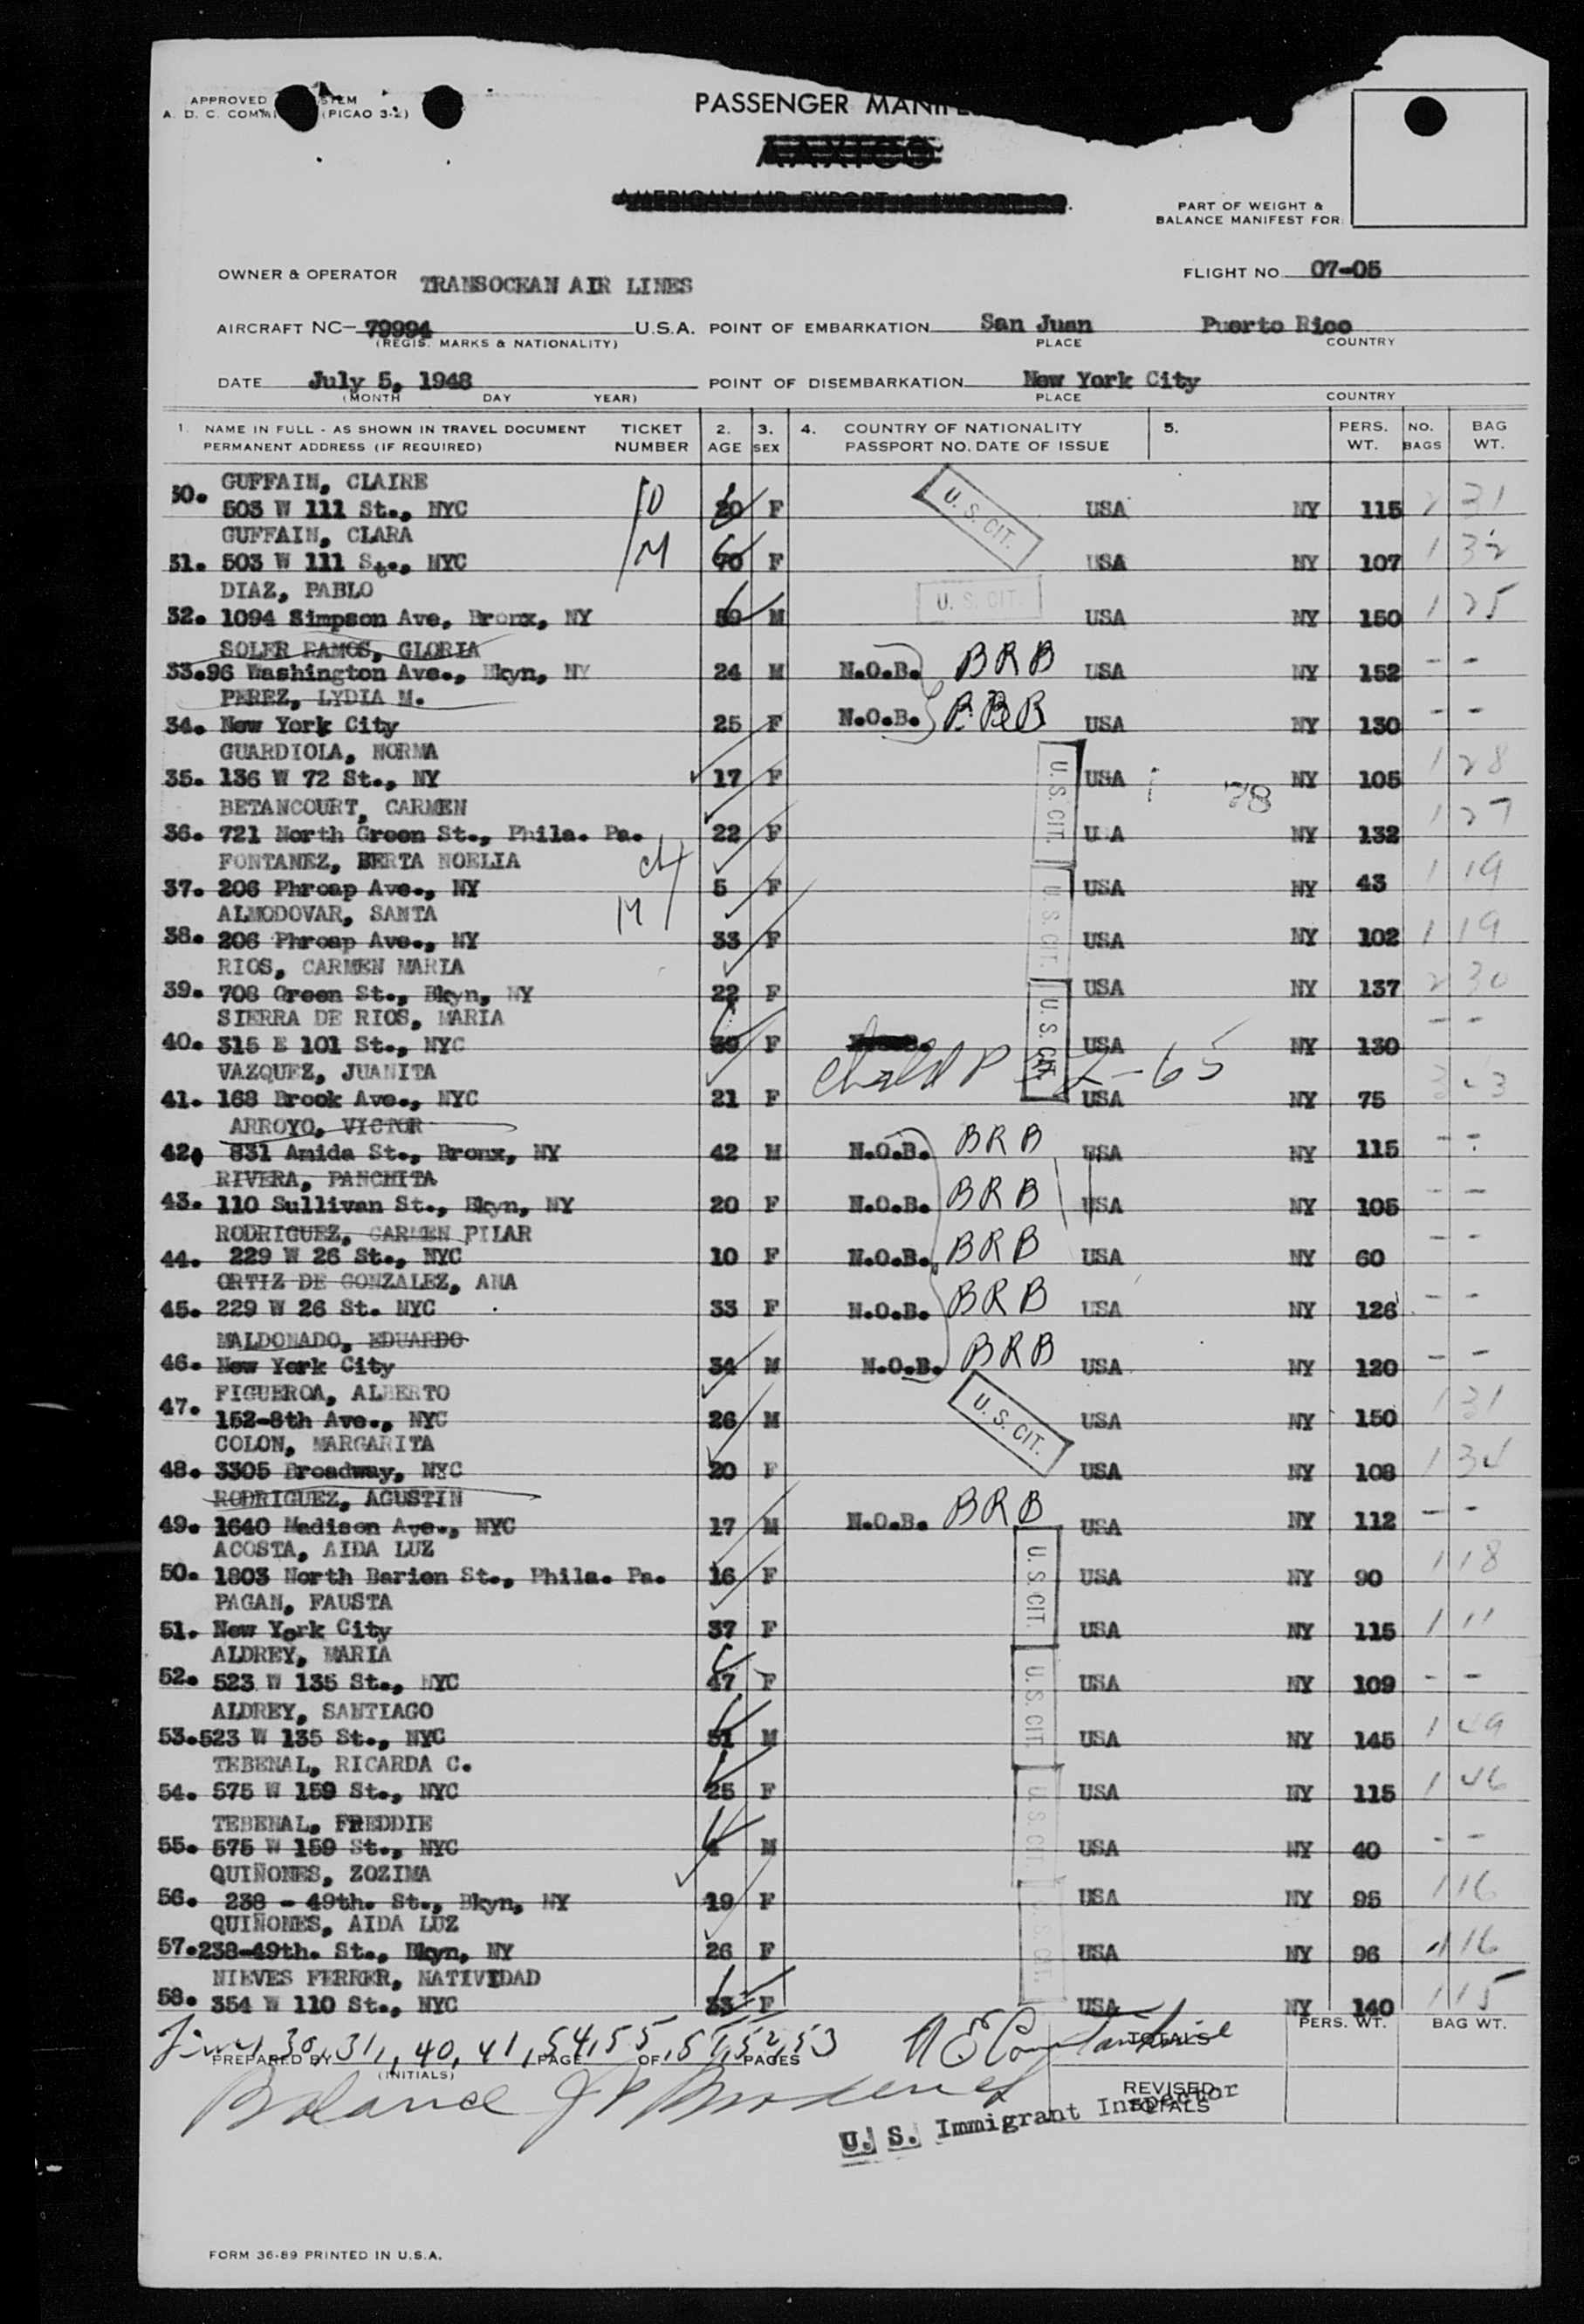 APPROVED
A. D. C. (PICAO 3-2)
PASSENGER
PART OF WEIGHT &
BALANCE MANIFEST FOR:
OWNER & OPERATOR TRANSOCEAN AIR LINES
FLIGHT NO. 07-05
AIRCRAFT NC- 79994 U.S.A. POINT OF EMBARKATION San Juan Puerto Rico
(REGIS. MARKS & NATIONALITY) PLACE COUNTRY
DATE July 5, 1948 POINT OF DISEMBARKATION New York City
(MONTH DAY YEAR) PLACE COUNTRY
1. NAME IN FULL - AS SHOWN IN TRAVEL DOCUMENT TICKET 2. 3. 4. COUNTRY OF NATIONALITY 5. PERS. NO. BAG
PERMANENT ADDRESS (IF REQUIRED) NUMBER AGE SEX PASSPORT NO. DATE OF ISSUE WT. BAGS WT.
GUFFAIN, CLAIRE
30. 503 W 111 St., NYC D 20 F U. S. CIT. USA NY 115 2 31
GUFFAIN, CLARA
31. 503 W 111 St., NYC M 70 F USA NY 107 1 32
DIAZ, PABLO
32. 1094 Simpson Ave, Bronx, NY 59 M U. S. CIT. USA NY 150 1 25
SOLER RAMOS, GLORIA
33.96 Washington Ave., Bkyn, NY 24 M N.O.B. BRB USA NY 152 - -
PEREZ, LYDIA M.
34. New York City 25 F N.O.B. BRB USA NY 130 - -
GUARDIOLA, NORMA
35. 136 W 72 St., NY 17 F U.S.CIT. USA NY 105 1 28
BETANCOURT, CARMEN
36. 721 North Green St., Phila. Pa. 22 F U A NY 132 1 27
FONTANEZ, BERTA NOELIA
37. 206 Phroap Ave., NY ch 5 F U.S.CIT. USA NY 43 1 19
ALMODOVAR, SANTA
38. 206 Phroap Ave., NY M 33 F USA NY 102 1 19
RIOS, CARMEN MARIA
39. 708 Green St., Bkyn, NY 22 F U.S.CIT. USA NY 137 2 30
SIERRA DE RIOS, MARIA
40. 315 E 101 St., NYC 39 F USA NY 130 - -
VAZQUEZ, JUANITA
41. 168 Brook Ave., NYC 21 F USA NY 75
ARROYO, VICTOR
42. 831 Amida St., Bronx, NY 42 M N.O.B. BRB USA NY 115 - -
RIVERA, PANCHITA
43. 110 Sullivan St., Bkyn, NY 20 F N.O.B. BRB USA NY 105 - -
RODRIGUEZ, CARMEN PILAR
44. 229 W 26 St., NYC 10 F N.O.B. BRB USA NY 60 - -
ORTIZ DE GONZALEZ, ANA
45. 229 W 26 St. NYC 33 F N.O.B. BRB USA NY 126 - -
MALDONADO, EDUARDO
46. New York City 34 M N.O.B. BRB USA NY 120 - -
FIGUEROA, ALBERTO
47. 152-8th Ave., NYC 26 M U. S. CIT. USA NY 150 1 31
COLON, MARGARITA
48. 3305 Broadway, NYC 20 F USA NY 108 1 34
RODRIGUEZ, AGUSTIN
49. 1640 Madison Ave., NYC 17 M N.O.B. BRB USA NY 112 - -
ACOSTA, AIDA LUZ
50. 1803 North Darien St., Phila. Pa. 16 F U.S.CIT. USA NY 90 1 18
PAGAN, FAUSTA
51. New York City 37 F USA NY 115 1 11
ALDREY, MARIA
52. 523 W 135 St., NYC 47 F U.S.CIT. USA NY 109 - -
ALDREY, SANTIAGO
53.523 W 135 St., NYC 51 M USA NY 145 1 49
TEBENAL, RICARDA C.
54. 575 W 159 St., NYC 25 F U.S.CIT. USA NY 115 1 46
TEBENAL, FREDDIE
55. 575 W 159 St., NYC 4 M USA NY 40 - -
QUIÑONES, ZOZIMA
56. 238 - 49th. St., Bkyn, NY 19 F USA NY 95 1 16
QUIÑONES, AIDA LUZ
57.238-49th. St., Bkyn, NY 26 F USA NY 96 1 16
NIEVES FERRER, NATIVIDAD
58. 354 W 110 St., NYC 33 F USA NY 140 1 15
30, 31, 40, 41, 54, 55, 51, 52, 53
PREPARED BY PAGE OF PAGES TOTALS PERS. WT. BAG WT.
(INITIALS)
Balance
REVISED TOTALS
U. S. Immigrant Inspector
FORM 36-89 PRINTED IN U.S.A.